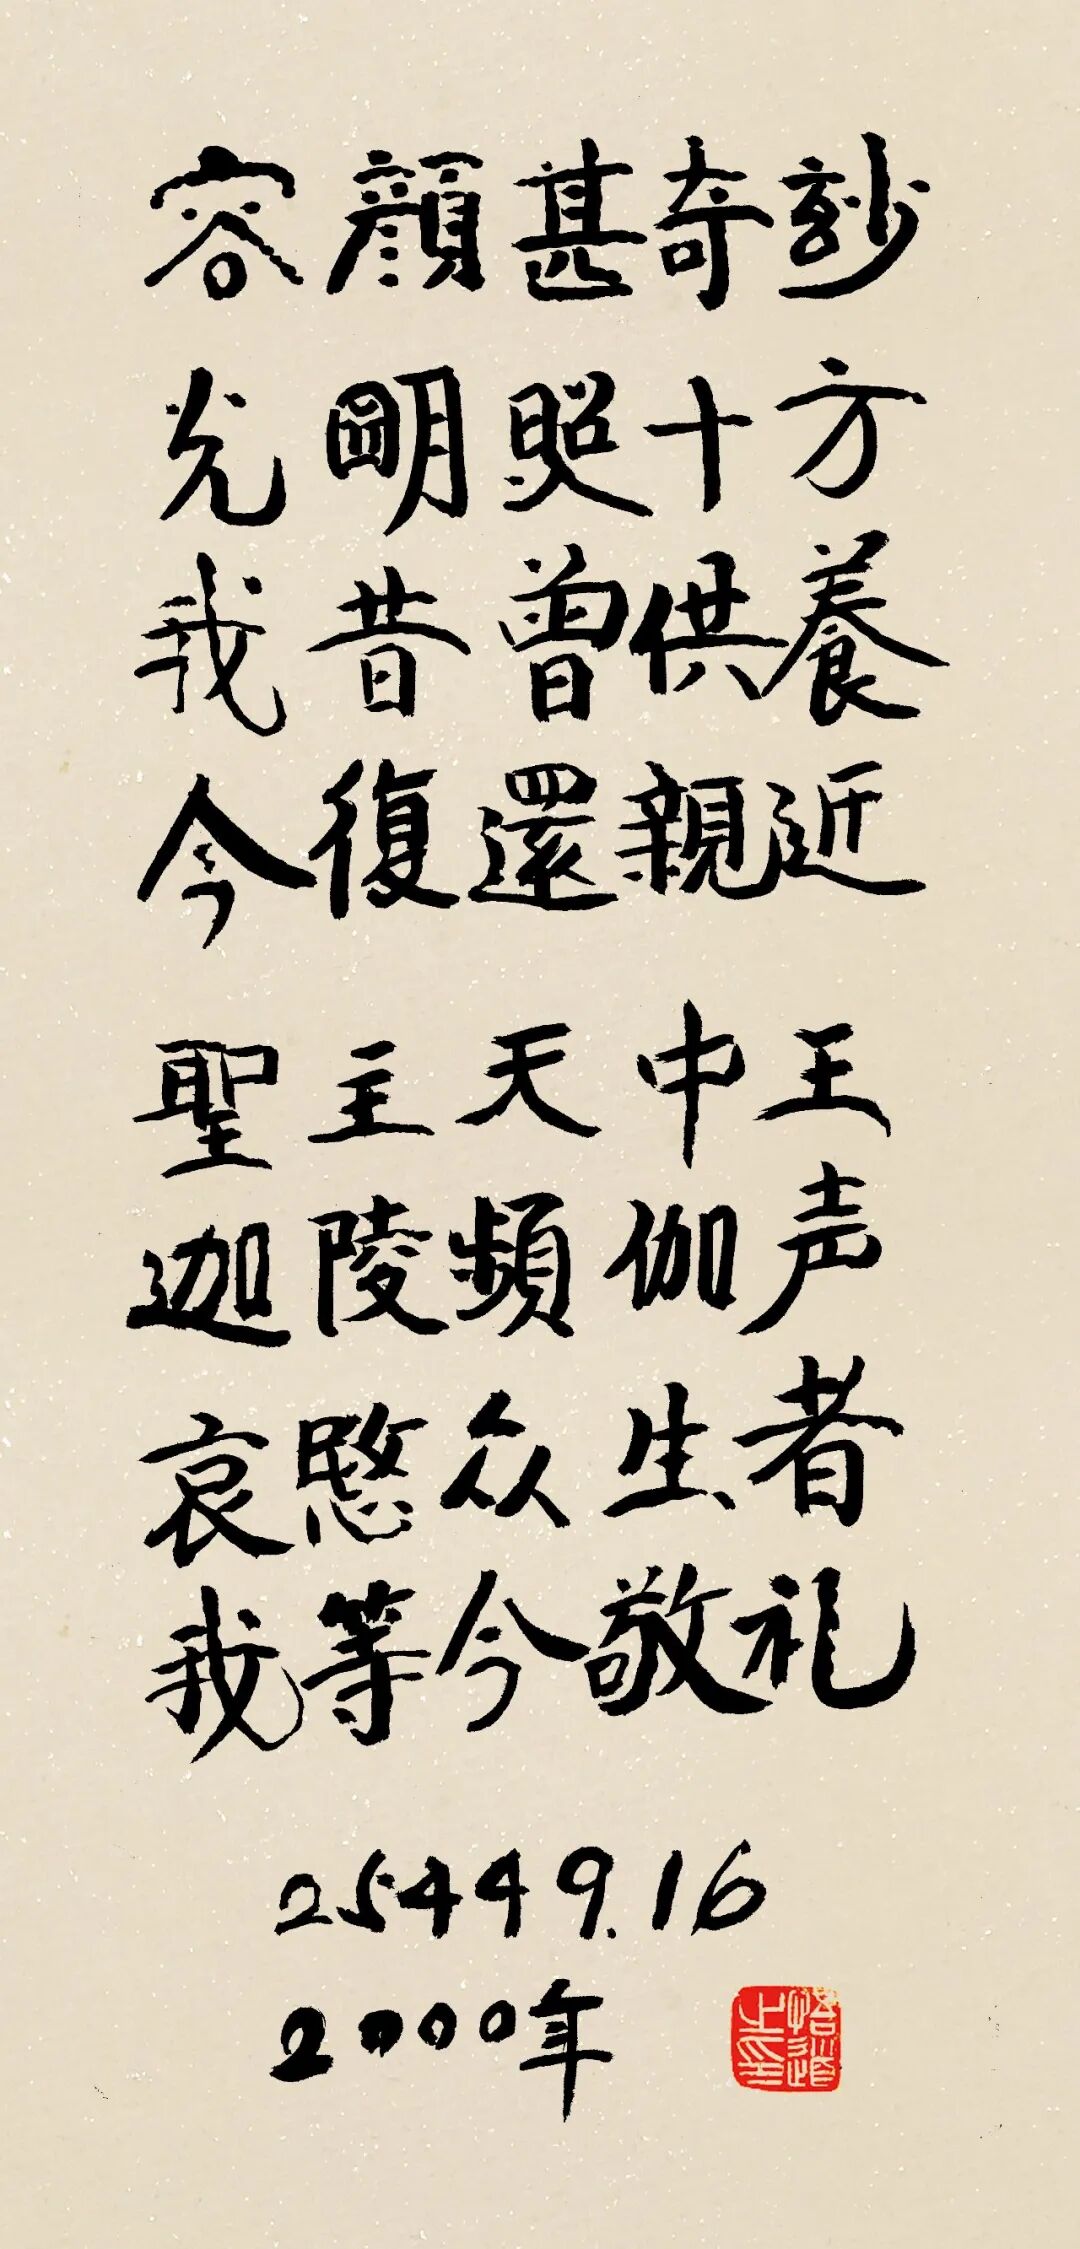 容顔甚奇玅
光朙照十方
我昔曾供養
今復還親近
聖主天中王
迦陵頻伽声
哀愍众生者
我等今敬礼
25449.16
2000年
悟道之印